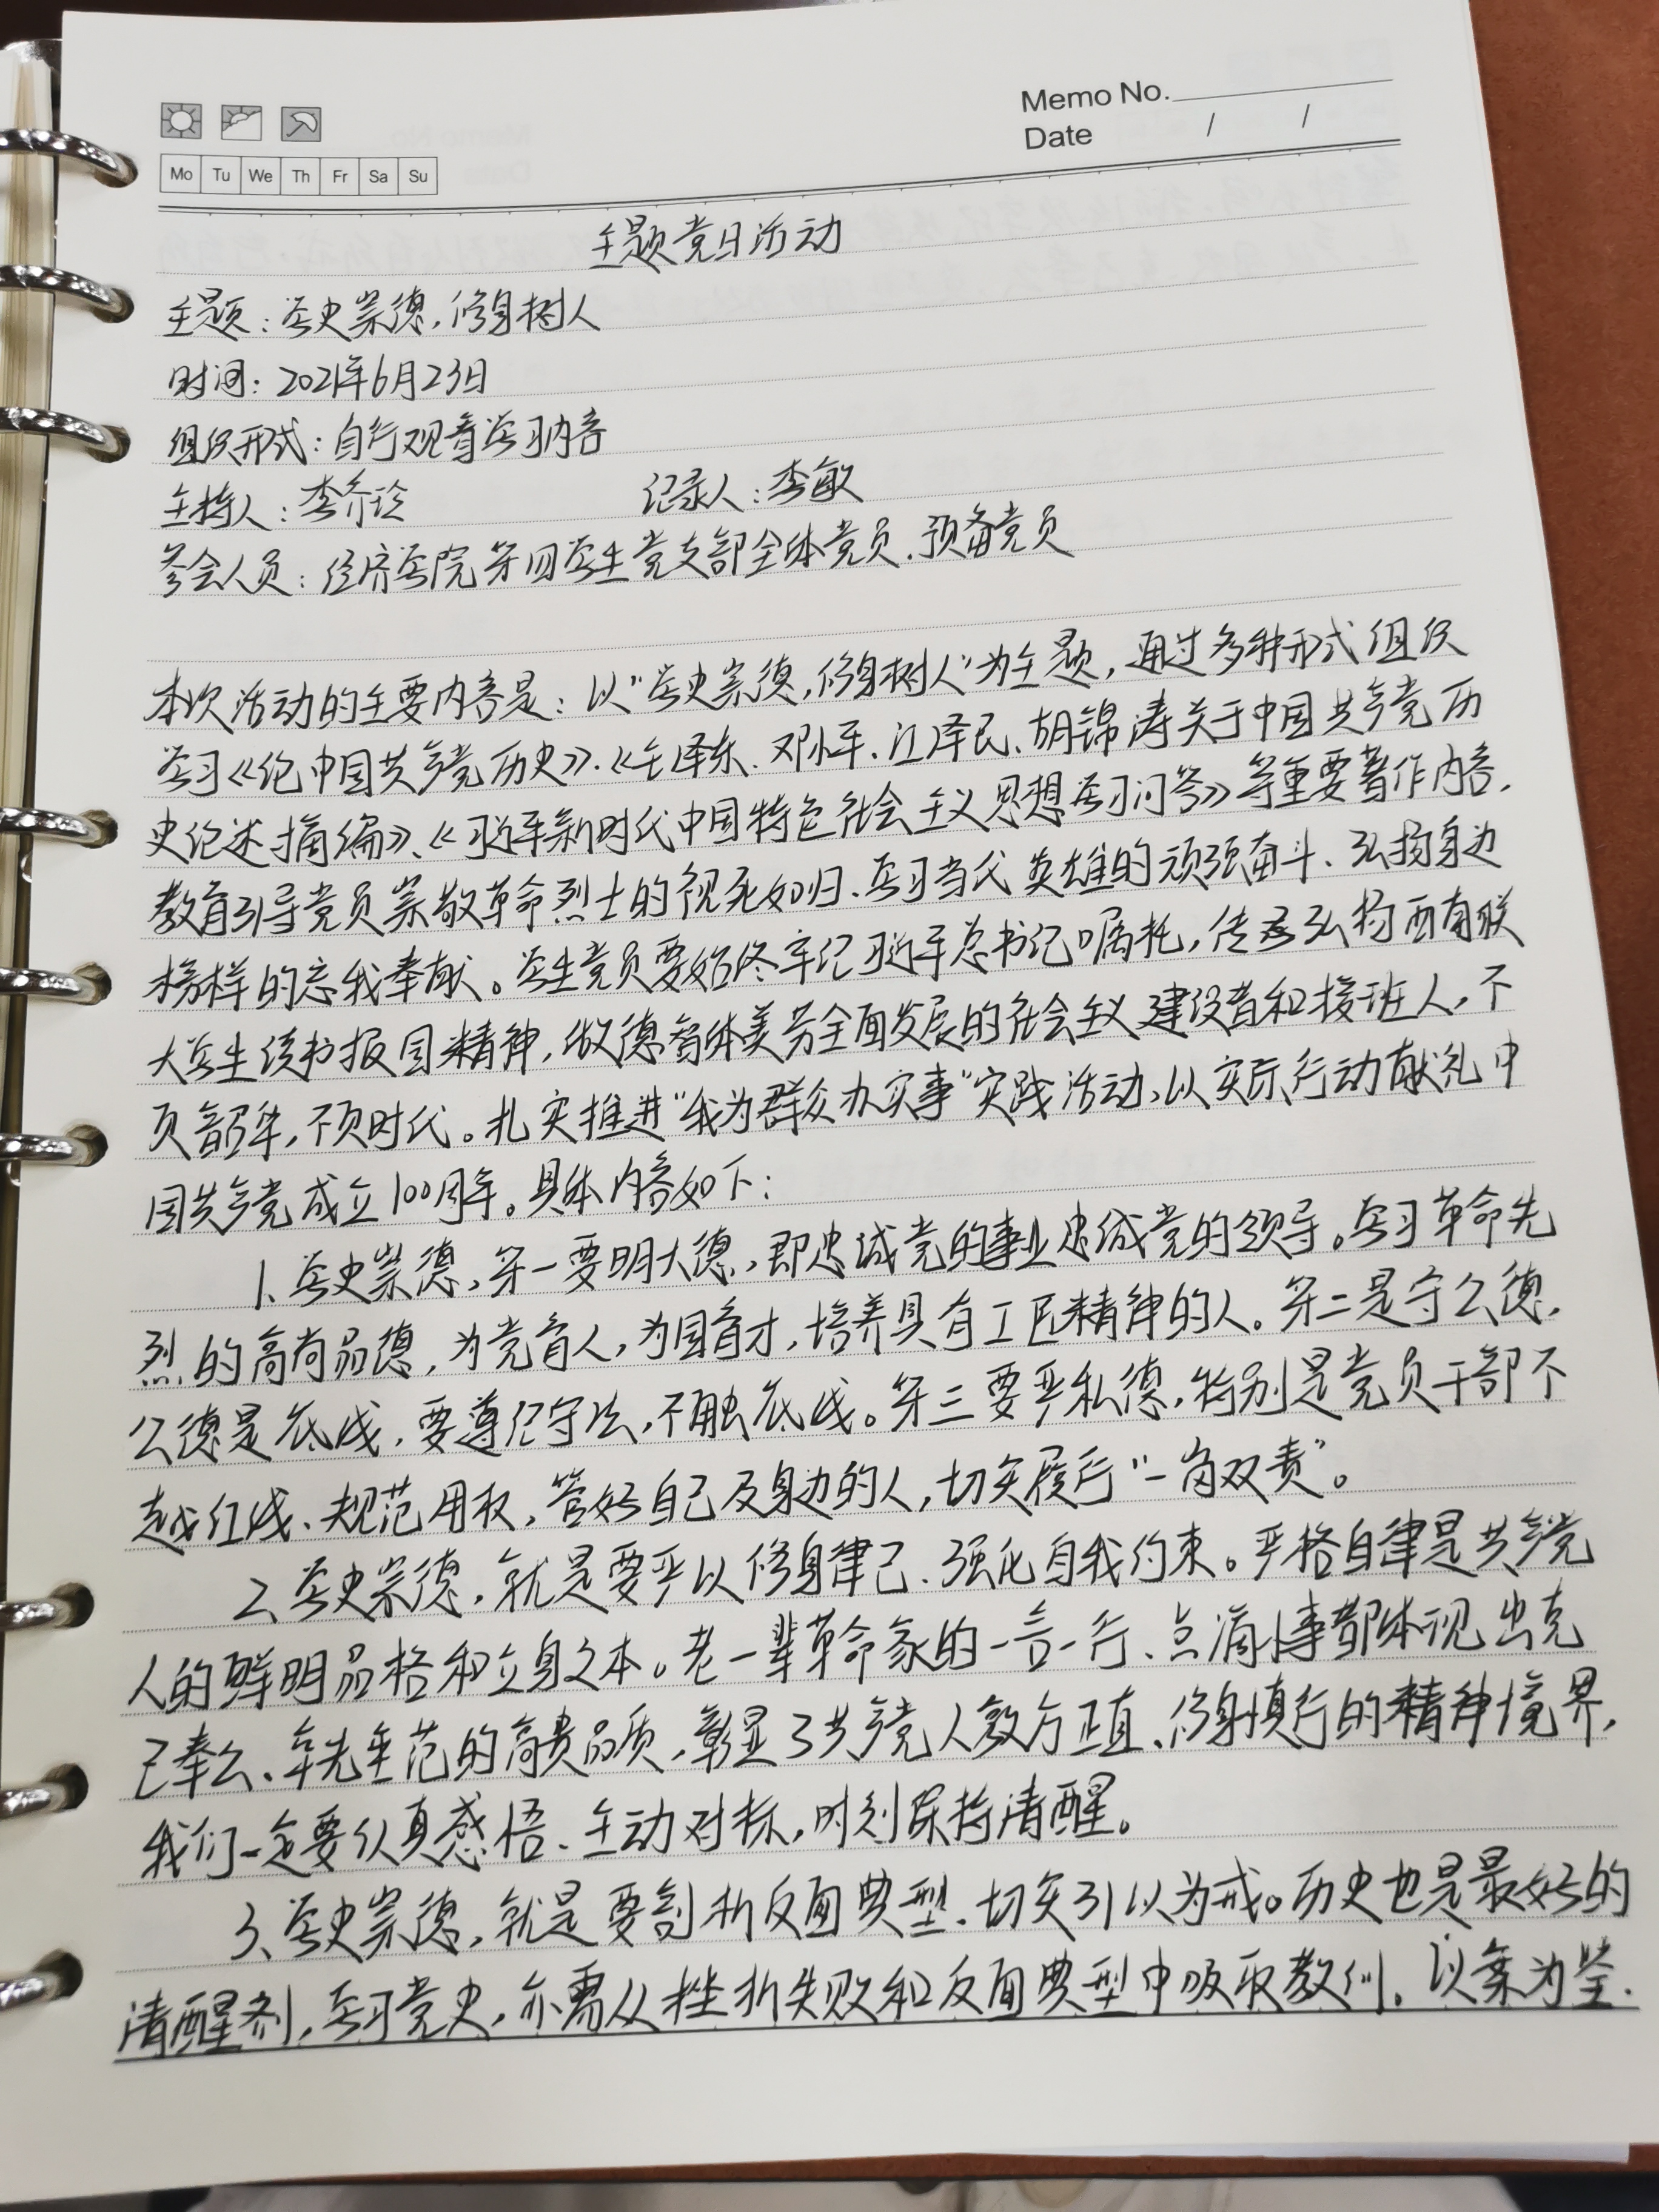 Memo No.
Date / /
Mo Tu We Th Fr Sa Su
主题党日活动
主题：学史崇德，修身树人
时间：2021年6月23日
组织形式：自行观看学习内容
主持人：李乔珍 记录人：李敏
参会人员：经济学院第四学生党支部全体党员、预备党员
本次活动的主要内容是：以“学史崇德，修身树人”为主题，通过多种形式组织
学习《论中国共产党历史》、《毛泽东、邓小平、江泽民、胡锦涛关于中国共产党历
史论述摘编》、《习近平新时代中国特色社会主义思想学习问答》等重要著作内容，
教育引导党员崇敬革命烈士的视死如归、学习当代英雄的顽强奋斗、弘扬身边
榜样的忘我奉献。学生党员要始终牢记习近平总书记嘱托，传承弘扬西南联
大学生读书报国精神，做德智体美劳全面发展的社会主义建设者和接班人，不
负韶华，不负时代。扎实推进“我为群众办实事”实践活动，以实际行动献礼中
国共产党成立100周年。具体内容如下：
1、学史崇德，第一要明大德，即忠诚党的事业忠诚党的领导。学习革命先
烈的高尚品德，为党育人，为国育才，培养具有工匠精神的人。第二是守公德，
公德是底线，要遵纪守法，不触底线。第三要严私德，特别是党员干部不
越红线、规范用权，管好自己及身边的人，切实履行“一岗双责”。
2、学史崇德，就是要严以修身律己、强化自我约束。严格自律是共产党
人的鲜明品格和立身之本。老一辈革命家的一言一行、点滴小事都体现出克
己奉公、率先垂范的高贵品质，彰显了共产党人敦方正直、修身慎行的精神境界，
我们一定要认真感悟、主动对标，时刻保持清醒。
3、学史崇德，就是要剖析反面典型、切实引以为戒。历史也是最好的
清醒剂，学习党史，亦需从挫折失败和反面典型中吸取教训，以案为鉴、